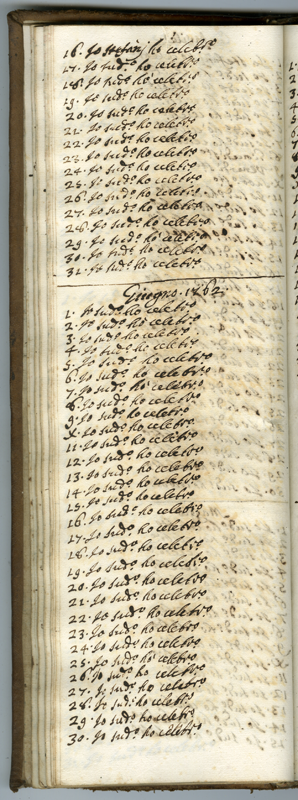 16. Io ho celebro
17. Io sud.o ho celebro
18. Io sud.o ho celebro
19. Io sud.o ho celebro
20. Io sud.o ho celebro
21. Io sud.o ho celebro
22. Io sud.o ho celebro
23. Io sud.o ho celebro
24. Io sud.o ho celebro
25. Io sud.o ho celebro
26. Io sud.o ho celebro
27. Io sud.o ho celebro
28. Io sud.o ho celebro
29. Io sud.o ho celebro
30. Io sud.o ho celebro
31. Io sud.o ho celebro
Giugno. 1762
1. Io sud.o ho celebro
2. Io sud.o ho celebro
3. Io sud.o ho celebro
4. Io sud.o ho celebro
5. Io sud.o ho celebro
6. Io sud.o ho celebro
7. Io sud.o ho celebro
8. Io sud.o ho celebro
9. Io sud.o ho celebro
X. Io sud.o ho celebro
11. Io sud.o ho celebro
12. Io sud.o ho celebro
13. Io sud.o ho celebro
14. Io sud.o ho celebro
15. Io sud.o ho celebro
16. Io sud.o ho celebro
17. Io sud.o ho celebro
18. Io sud.o ho celebro
19. Io sud.o ho celebro
20. Io sud.o ho celebro
21. Io sud.o ho celebro
22. Io sud.o ho celebro
23. Io sud.o ho celebro
24. Io sud.o ho celebro
25. Io sud.o ho celebro
26. Io sud.o ho celebro
27. Io sud.o ho celebro
28. Io sud.o ho celebro
29. Io sud.o ho celebro
30. Io sud.o ho celebro